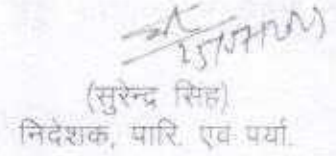 (सुरेन्द्र सिंह)
निदेशक, पारि. एवं पर्या.